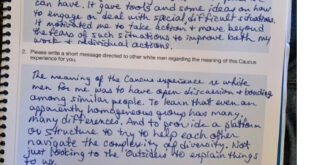 can have. It gave tools and some ideas on how
to engage or deal with special difficult situations.
It motivated me to take action & move beyond
the fears of such situations to improve both my
work & individual actions.
2. Please write a short message directed to other white man regarding the meaning of this Caucus
experience for you.
The meaning of the Caucus experience re white
men for me was to have open discussion & bonding
among similar people. To learn that even an
apparently homogeneous group has many,
many differences. And to provide a platform
or structure to try to help each other
navigate the complexity of diversity. Not
just looking to the outsiders to explain things
to us.